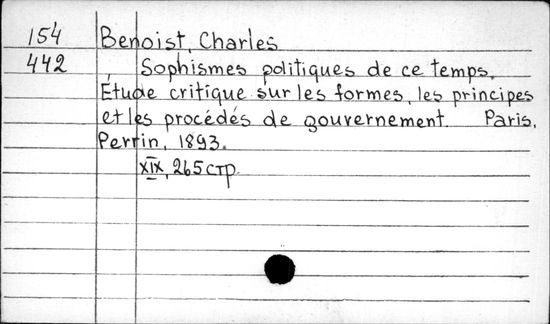 154 Benoist, Charles
442 Sophismes politiques de ce temps.
Étude critique sur les formes, les principes
et les procédés de gouvernement. Paris,
Perrin, 1893.
XIX, 265 стр.